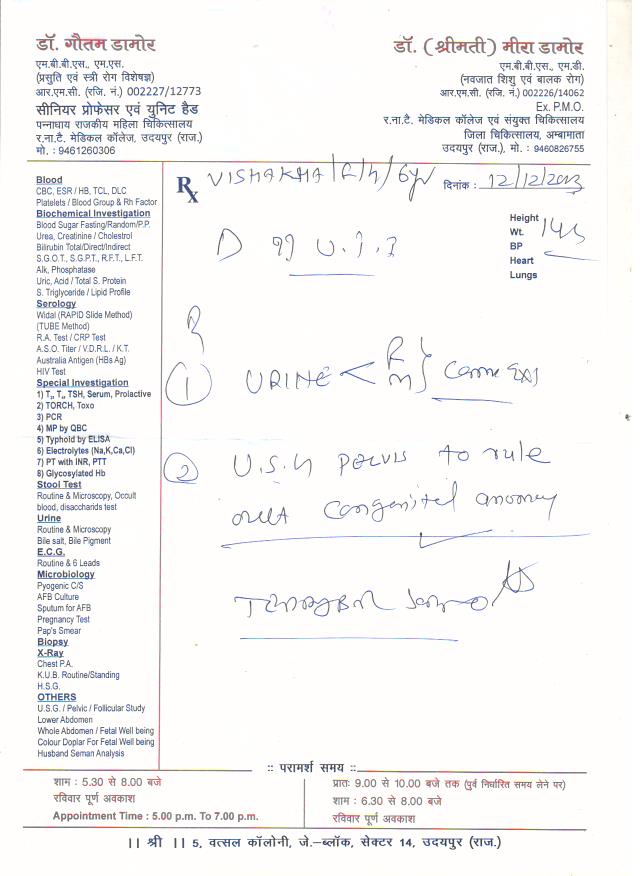 डॉ. गौतम डामोर
एम.बी.बी.एस., एम.एस.
(प्रसुति एवं स्त्री रोग विशेषज्ञ)
आर.एम.सी. (रजि. नं.) 002227/12773
सीनियर प्रोफेसर एवं युनिट हैड
पन्नाधाय राजकीय महिला चिकित्सालय
र.ना.टै. मेडिकल कॉलेज, उदयपुर (राज.)
मो. : 9461260306
डॉ. (श्रीमती) मीरा डामोर
एम.बी.बी.एस., एम.डी.
(नवजात शिशु एवं बालक रोग)
आर.एम.सी. (रजि. नं.) 002226/14062
Ex. P.M.O.
र.ना.टै. मेडिकल कॉलेज एवं संयुक्त चिकित्सालय
जिला चिकित्सालय, अम्बामाता
उदयपुर (राज.), मो. : 9460826755
Blood
CBC, ESR / HB, TCL, DLC
Platelets / Blood Group & Rh Factor
Biochemical Investigation
Blood Sugar Fasting/Random/P.P.
Urea, Creatinine / Cholestrol
Bilirubin Total/Direct/Indirect
S.G.O.T., S.G.P.T., R.F.T., L.F.T.
Alk, Phosphatase
Uric, Acid / Total S. Protein
S. Triglyceride / Lipid Profile
Serology
Widal (RAPID Slide Method)
(TUBE Method)
R.A. Test / CRP Test
A.S.O. Titer / V.D.R.L. / K.T.
Australia Antigen (HBs Ag)
HIV Test
Special Investigation
1) T₃, T₄, TSH, Serum, Prolactive
2) TORCH, Toxo
3) PCR
4) MP by QBC
5) Typhoid by ELISA
6) Electrolytes (Na,K,Ca,Cl)
7) PT with INR, PTT
8) Glycosylated Hb
Stool Test
Routine & Microscopy, Occult
blood, disaccharids test
Urine
Routine & Microscopy
Bile salt, Bile Pigment
E.C.G.
Routine & 6 Leads
Microbiology
Pyogenic C/S
AFB Culture
Sputum for AFB
Pregnancy Test
Pap's Smear
Biopsy
X-Ray
Chest P.A.
K.U.B. Routine/Standing
H.S.G.
OTHERS
U.S.G. / Pelvic / Follicular Study
Lower Abdomen
Whole Abdomen / Fetal Well being
Colour Doplar For Fetal Well being
Husband Seman Analysis
Rx VISHAKHA
दिनांक : 12/12/2013
Height
Wt.
BP
Heart
Lungs
U.T.I
1 URINE < R M }
2 U.S.G PELVIS to rule
out congenital anomaly
:: परामर्श समय ::
शाम : 5.30 से 8.00 बजे
रविवार पूर्ण अवकाश
Appointment Time : 5.00 p.m. To 7.00 p.m.
प्रातः 9.00 से 10.00 बजे तक (पुर्व निर्धारित समय लेने पर)
शाम : 6.30 से 8.00 बजे
रविवार पूर्ण अवकाश
|| श्री || 5, वत्सल कॉलोनी, जे.–ब्लॉक, सेक्टर 14, उदयपुर (राज.)